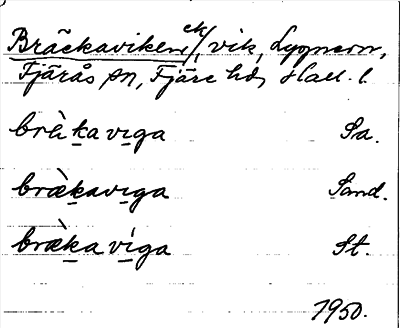 Bräckaviken ek/, vik, Lygnern,
Fjärås sn, Fjäre hd, Hall. l.
brǜka viga Sa.
brækaviga Sand.
bræ̀ka víga St.
1950.